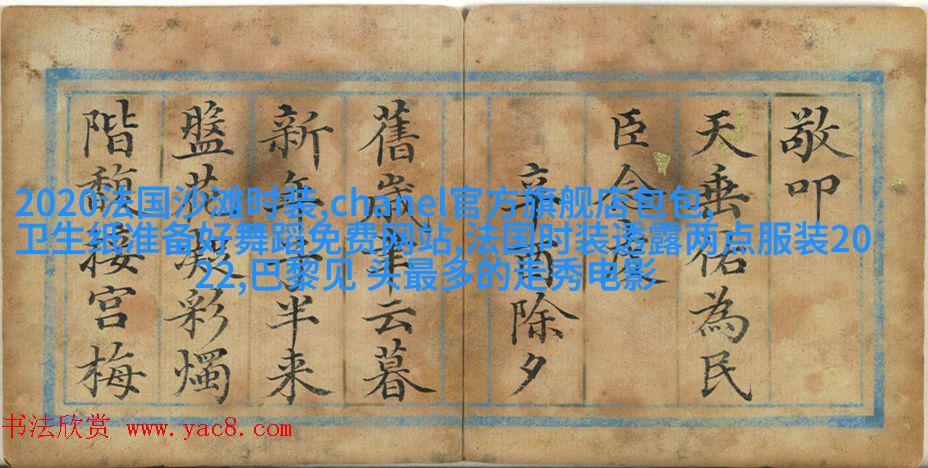 敬叩
天垂佑為民
臣
辛酉除夕
舊歲聿云暮
新年子半来
盤花彩燭
階馥接宮梅
2020法国沙滩时装,chanel官方旗舰店包包,
卫生纸准备好舞蹈免费网站,法国时装透露两点服装20
22,巴黎见 头最多的走秀电影
书法欣赏 www.yac8.com